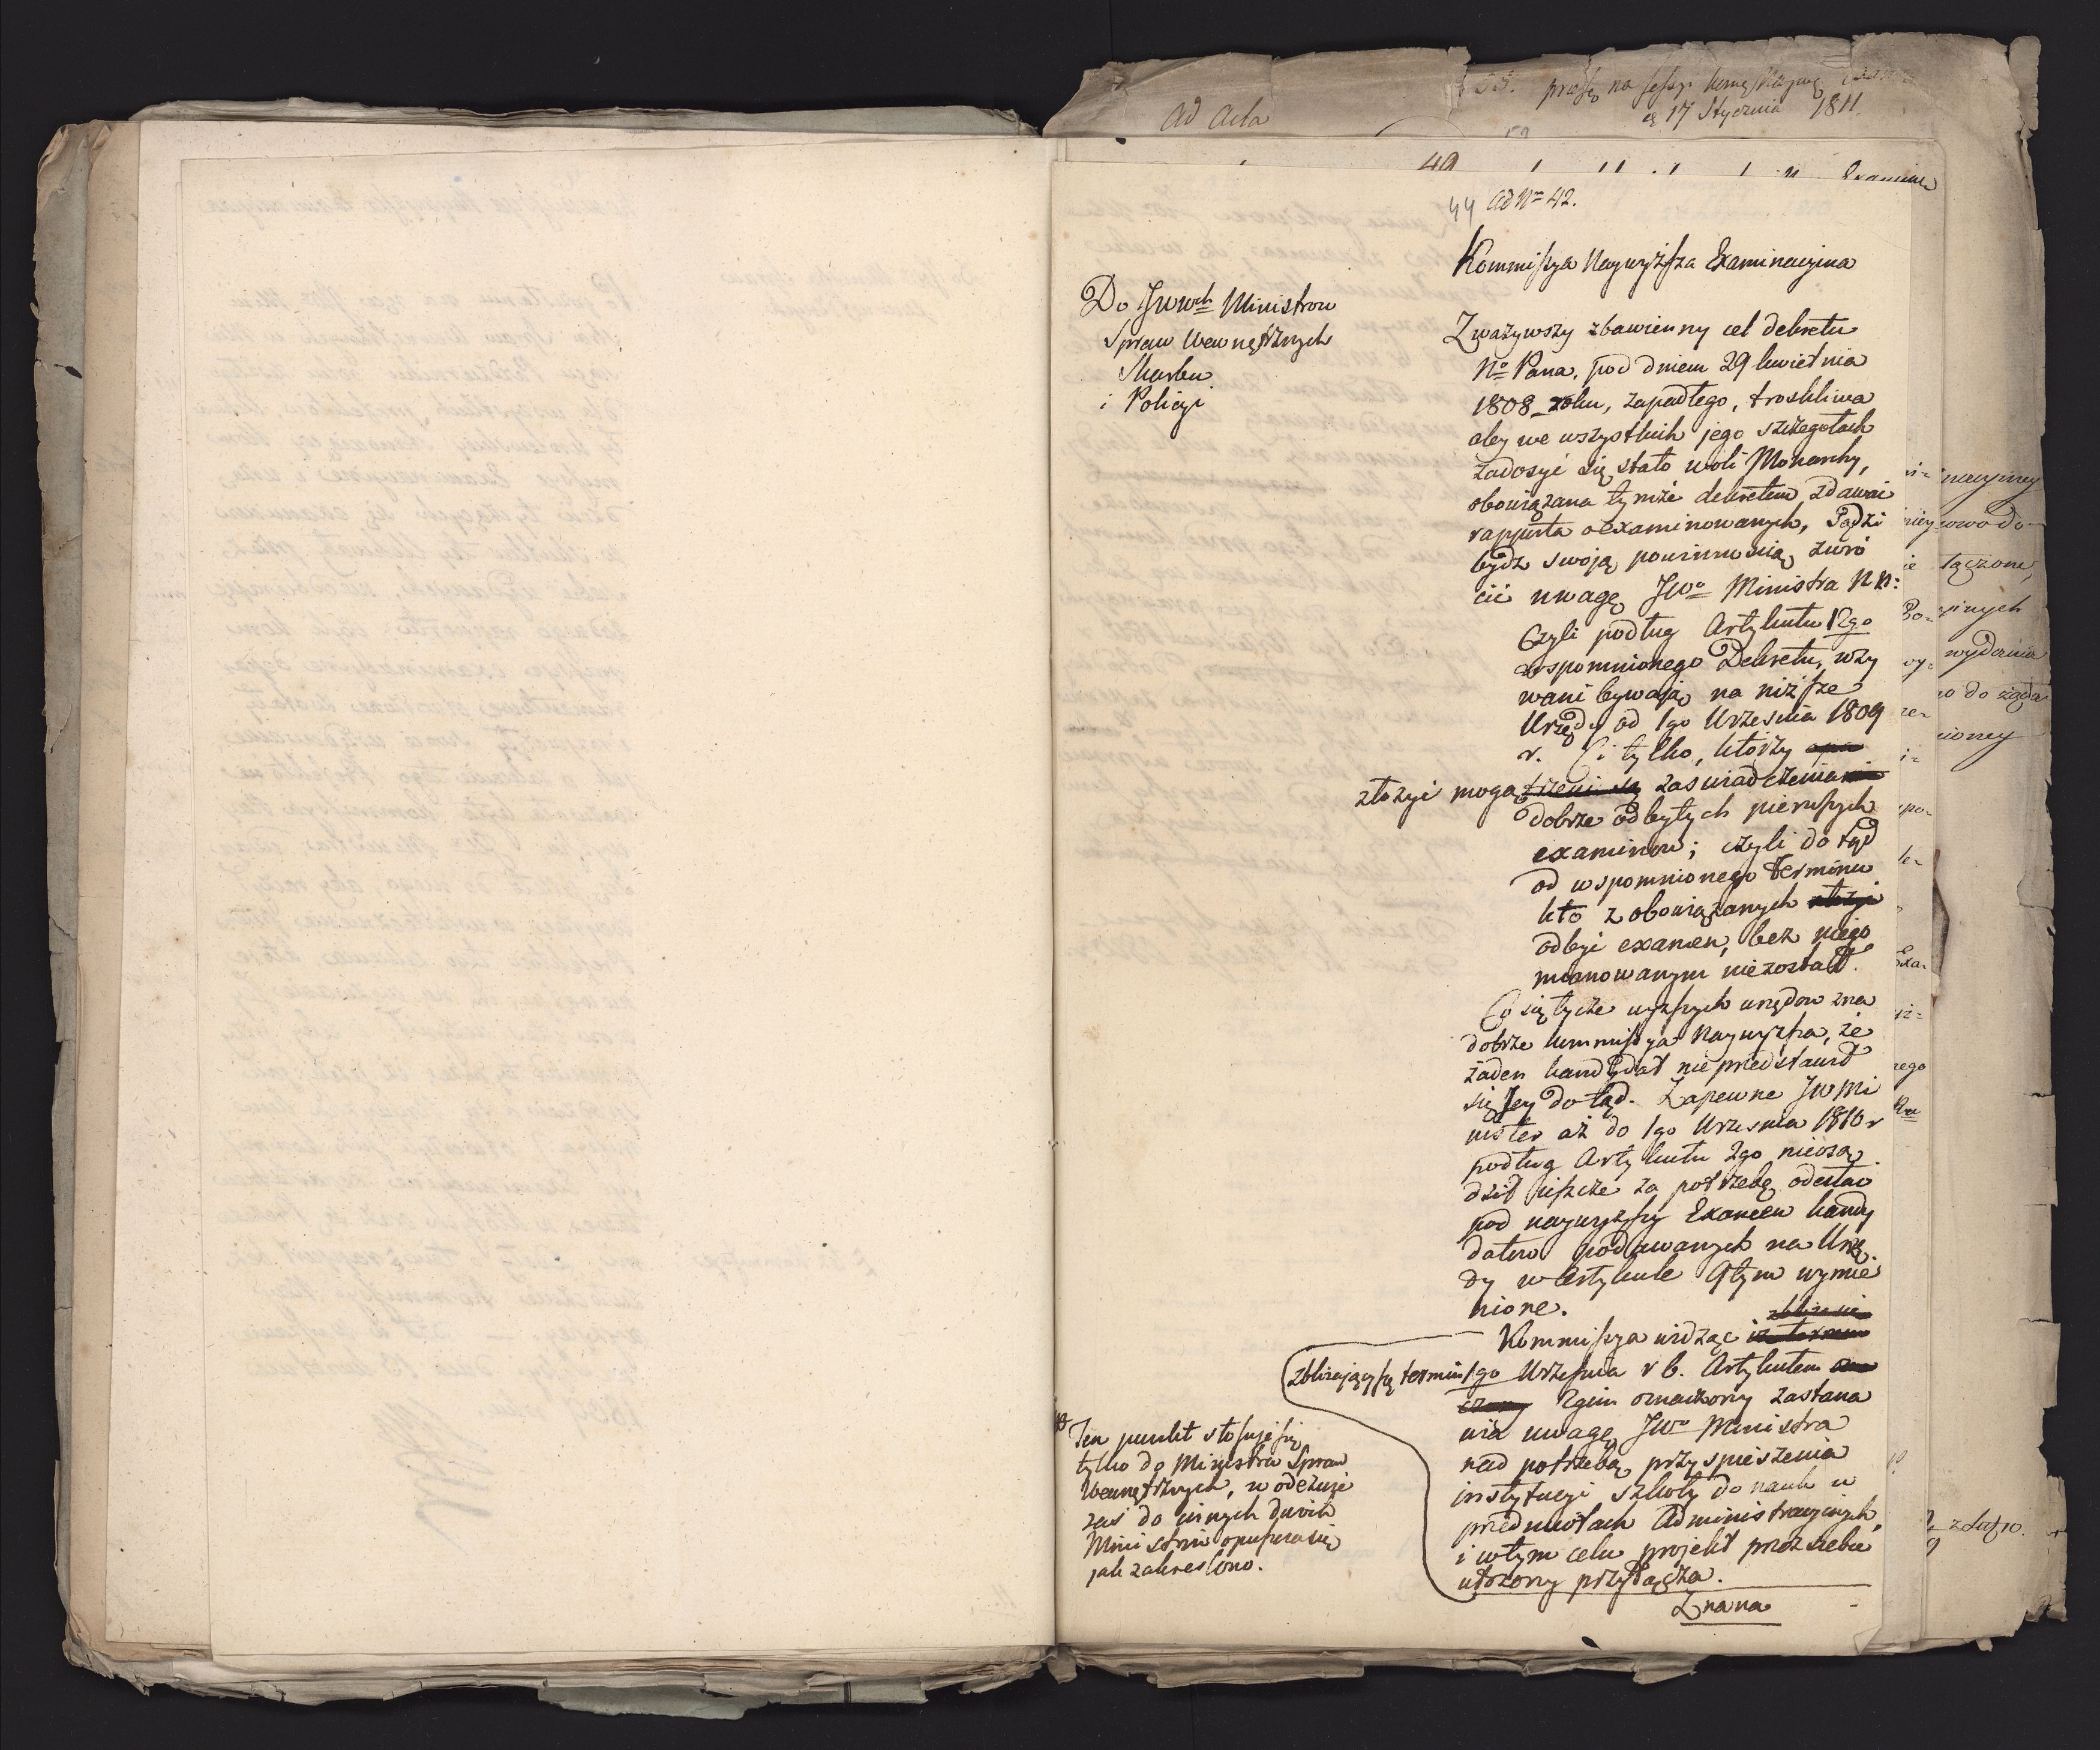 ad acta
na sessyi
17 Stycznia 1811.
49
44 ad No 42.
Kommissya Naywyższa Examinacyina
Do JWWch Ministrow
Spraw Wewnętrznych
Skarbu
i Policyi
Zważywszy zbawienny cel dekretu
No Pana, pod dniem 29 kwietnia
1808 roku, zapadłego, troskliwa
aby we wszystkich jego szczegołach
zadosyć się stało woli Monarchy,
obowiązana tymże dekretem zdawać
rapporta o examinowanych, Sądzi
bydź swoią powinnością zwró
cić uwagę JWo Ministra NN:
Czyli podług Artykułu 12go
wspomnionego Dekretu, wzy
wani bywaią na niższe
Urzędy od 1go Września 1809
r. Ci tylko, którzy opa
złożyć mogą trzeni są zaświadczenia
dobrze odbytych pierwszych
examinow; czyli do tąd
od wspomnionego terminu
kto z obowiązanych złożyć
odbyć examen, bez niego
mianowanym niezostał.
Co się tycze wyższych urzędow zna
dobrze kommissya Naywyższa, że
żaden kandydat nie przedstawił
się Jey do tąd. Zapewne JW Mi
nister aż do 1go Września 1810 r
podług Artykułu 2go nieosą
dził ieszcze za potrzebę odesłać
pod naywyższy Examen kandy
datow podawanych na Urzę
dy w Artykule 9tym wymie
nione.
Kommissya widząc iż
zbliżaiący się termin 1go Września r b. Artykułem ozna
czony 2gim oznaczony zastana
wia uwagę JWo Ministra
nad potrzebą przyspieszenia
instytucyi szkoły do nauk w
przedmiotach Administracyinych,
i w tym celu projekt przez siebie
ułożony przyłącza.
Znana
Ten punkt stosuje się
tylko do Ministra Spraw
Wewnętrznych, w odezwie
zaś do innych dwóch
Ministrów opuszcza się
jak zakreślono.